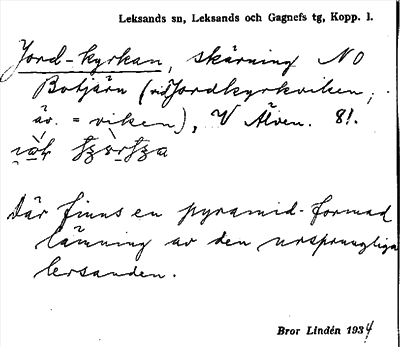 Leksands sn, Leksands och Gagnefs tg, Kopp. l.
Jord-kyrkan, skärning NO
Botjärn (vid Jordkyrkviken,
äv. = viken), V Älven. 8!.
Där finns en pyramid-formad
lämning av den ursprungliga
lersanden.
Bror Lindén 1934